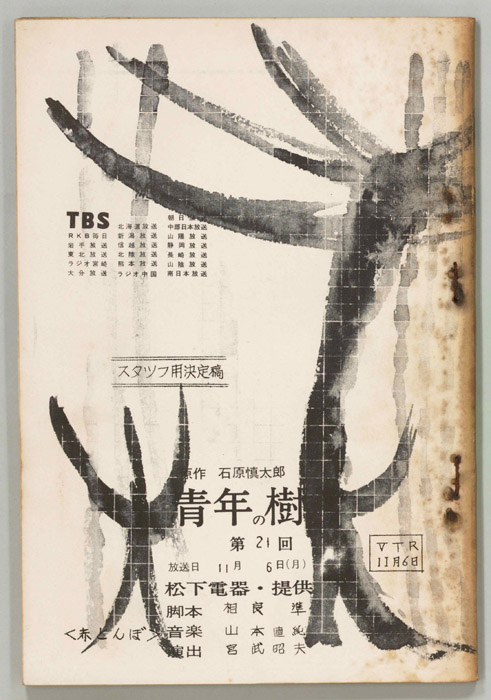 TBS
RKB毎日
岩手放送
東北放送
ラジオ宮崎
大分放送
北海道放送
新潟放送
信越放送
北陸放送
熊本放送
ラジオ中国
朝日放送
中部日本放送
山陽放送
静岡放送
長崎放送
山陰放送
南日本放送
スタッフ用決定稿
原作 石原慎太郎
青年の樹
第21回
放送日 11月 6日(月)
松下電器・提供
脚本 相良準
音楽 山本直純
演出 宮武昭夫
<赤とんぼ>
VTR
11月6日